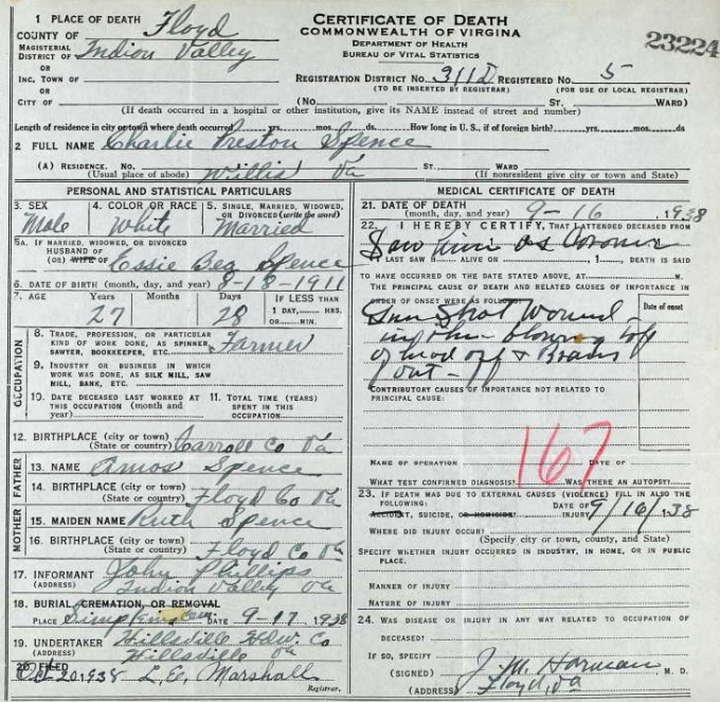 CERTIFICATE OF DEATH
COMMONWEALTH OF VIRGINA
DEPARTMENT OF HEALTH
BUREAU OF VITAL STATISTICS
23224
1 PLACE OF DEATH
COUNTY OF Floyd
MAGISTERIAL DISTRICT OF Indian Valley
OR
INC. TOWN OF
OR
CITY OF
REGISTRATION DISTRICT NO. 311D REGISTERED NO. 5
(TO BE INSERTED BY REGISTRAR) (FOR USE OF LOCAL REGISTRAR)
(No. ST. WARD)
(If death occurred in a hospital or other institution, give its NAME instead of street and number)
Length of residence in city or town where death occurred yrs. mos. ds. How long in U. S., if of foreign birth? yrs. mos. ds
2 FULL NAME Charlie Preston Spence
(A) RESIDENCE. No. Willis Va ST. WARD
(Usual place of abode) (If nonresident give city or town and State)
PERSONAL AND STATISTICAL PARTICULARS
3. SEX 4. COLOR OR RACE 5. SINGLE, MARRIED, WIDOWED, OR DIVORCED (write the word)
Male White Married
5A. IF MARRIED, WIDOWED, OR DIVORCED
HUSBAND OF
(OR) WIFE OF Essie Bez Spence
6. DATE OF BIRTH (month, day, and year) 8-18-1911
7. AGE Years Months Days IF LESS THAN
1 DAY, HRS.
OR MIN.
27 28
OCCUPATION
8. TRADE, PROFESSION, OR PARTICULAR
KIND OF WORK DONE, AS SPINNER,
SAWYER, BOOKKEEPER, ETC. Farmer
9. INDUSTRY OR BUSINESS IN WHICH
WORK WAS DONE, AS SILK MILL, SAW
MILL, BANK, ETC.
10. DATE DECEASED LAST WORKED AT
THIS OCCUPATION (month and
year)
11. TOTAL TIME (YEARS)
SPENT IN THIS
OCCUPATION
12. BIRTHPLACE (city or town)
(State or country) Carroll Co Va
FATHER
13. NAME Amos Spence
14. BIRTHPLACE (city or town)
(State or country) Floyd Co Va
MOTHER
15. MAIDEN NAME Ruth Spence
16. BIRTHPLACE (city or town)
(State or country) Floyd Co Va
17. INFORMANT John Phillips
(ADDRESS) Indian Valley Va
18. BURIAL, CREMATION, OR REMOVAL
PLACE DATE 9-17, 1938
19. UNDERTAKER Hillsville Hdw. Co
(ADDRESS) Hillsville Va
20. FILED Oct 20 1938 L. E. Marshall
Registrar.
MEDICAL CERTIFICATE OF DEATH
21. DATE OF DEATH
(month, day, and year) 9-16, 1938
22. I HEREBY CERTIFY, THAT I ATTENDED DECEASED FROM
Saw him as Coroner
I LAST SAW H ALIVE ON , 1 , DEATH IS SAID
TO HAVE OCCURRED ON THE DATE STATED ABOVE, AT M.
THE PRINCIPAL CAUSE OF DEATH AND RELATED CAUSES OF IMPORTANCE IN
ORDER OF ONSET WERE AS FOLLOWS:
Date of onset
Gun Shot Wound
blowing top
of head off & Brains
out -
CONTRIBUTORY CAUSES OF IMPORTANCE NOT RELATED TO
PRINCIPAL CAUSE:
167
NAME OF OPERATION DATE OF
WHAT TEST CONFIRMED DIAGNOSIS? WAS THERE AN AUTOPSY?
23. IF DEATH WAS DUE TO EXTERNAL CAUSES (VIOLENCE) FILL IN ALSO THE
FOLLOWING:
ACCIDENT, SUICIDE, OR HOMICIDE? DATE OF INJURY 9/16/38
WHERE DID INJURY OCCUR?
(Specify city or town, county, and State)
SPECIFY WHETHER INJURY OCCURRED IN INDUSTRY, IN HOME, OR IN PUBLIC
PLACE.
MANNER OF INJURY
NATURE OF INJURY
24. WAS DISEASE OR INJURY IN ANY WAY RELATED TO OCCUPATION OF
DECEASED?
IF SO, SPECIFY
(SIGNED) J. M. Harman, M. D.
(ADDRESS) Floyd, Va